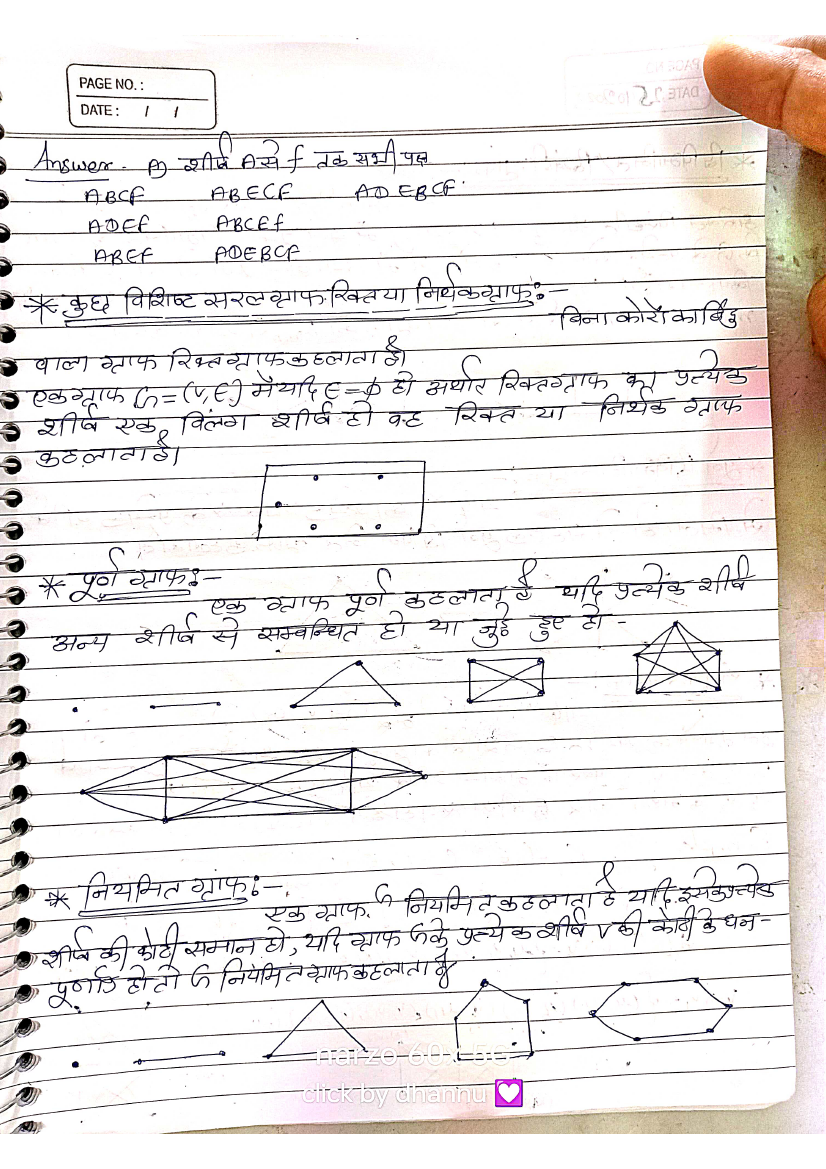 PAGE NO. :
DATE : / /
Answer - A) शीर्ष A से f तक सभी पक्ष
ABCF ABECF ADEBCF
ADEF ABCEF
ABEF ADEBCF
* कुछ विशिष्ट सरल ग्राफ रिक्त या निर्थक ग्राफ :-
बिना कोरों का बिंदु
वाला ग्राफ रिक्त ग्राफ कहलाता है।
एक ग्राफ G = (V, E) में यदि E = ϕ हो अर्थात रिक्त ग्राफ का प्रत्येक
शीर्ष एक विलग शीर्ष हो वह रिक्त या निर्थक ग्राफ
कहलाता है।
* पूर्ण ग्राफ :-
एक ग्राफ पूर्ण कहलाता है यदि प्रत्येक शीर्ष
अन्य शीर्ष से सम्बन्धित हो या जुड़े हुए हो -
* नियमित ग्राफ :-
एक ग्राफ G नियमित कहलाता है यदि इसके प्रत्येक
शीर्ष की कोटी समान हो, यदि ग्राफ G के प्रत्येक शीर्ष V की कोटी के धन -
पूर्णांक हो तो G नियमित ग्राफ कहलाता है
narzo 60x 5G
click by dhannu